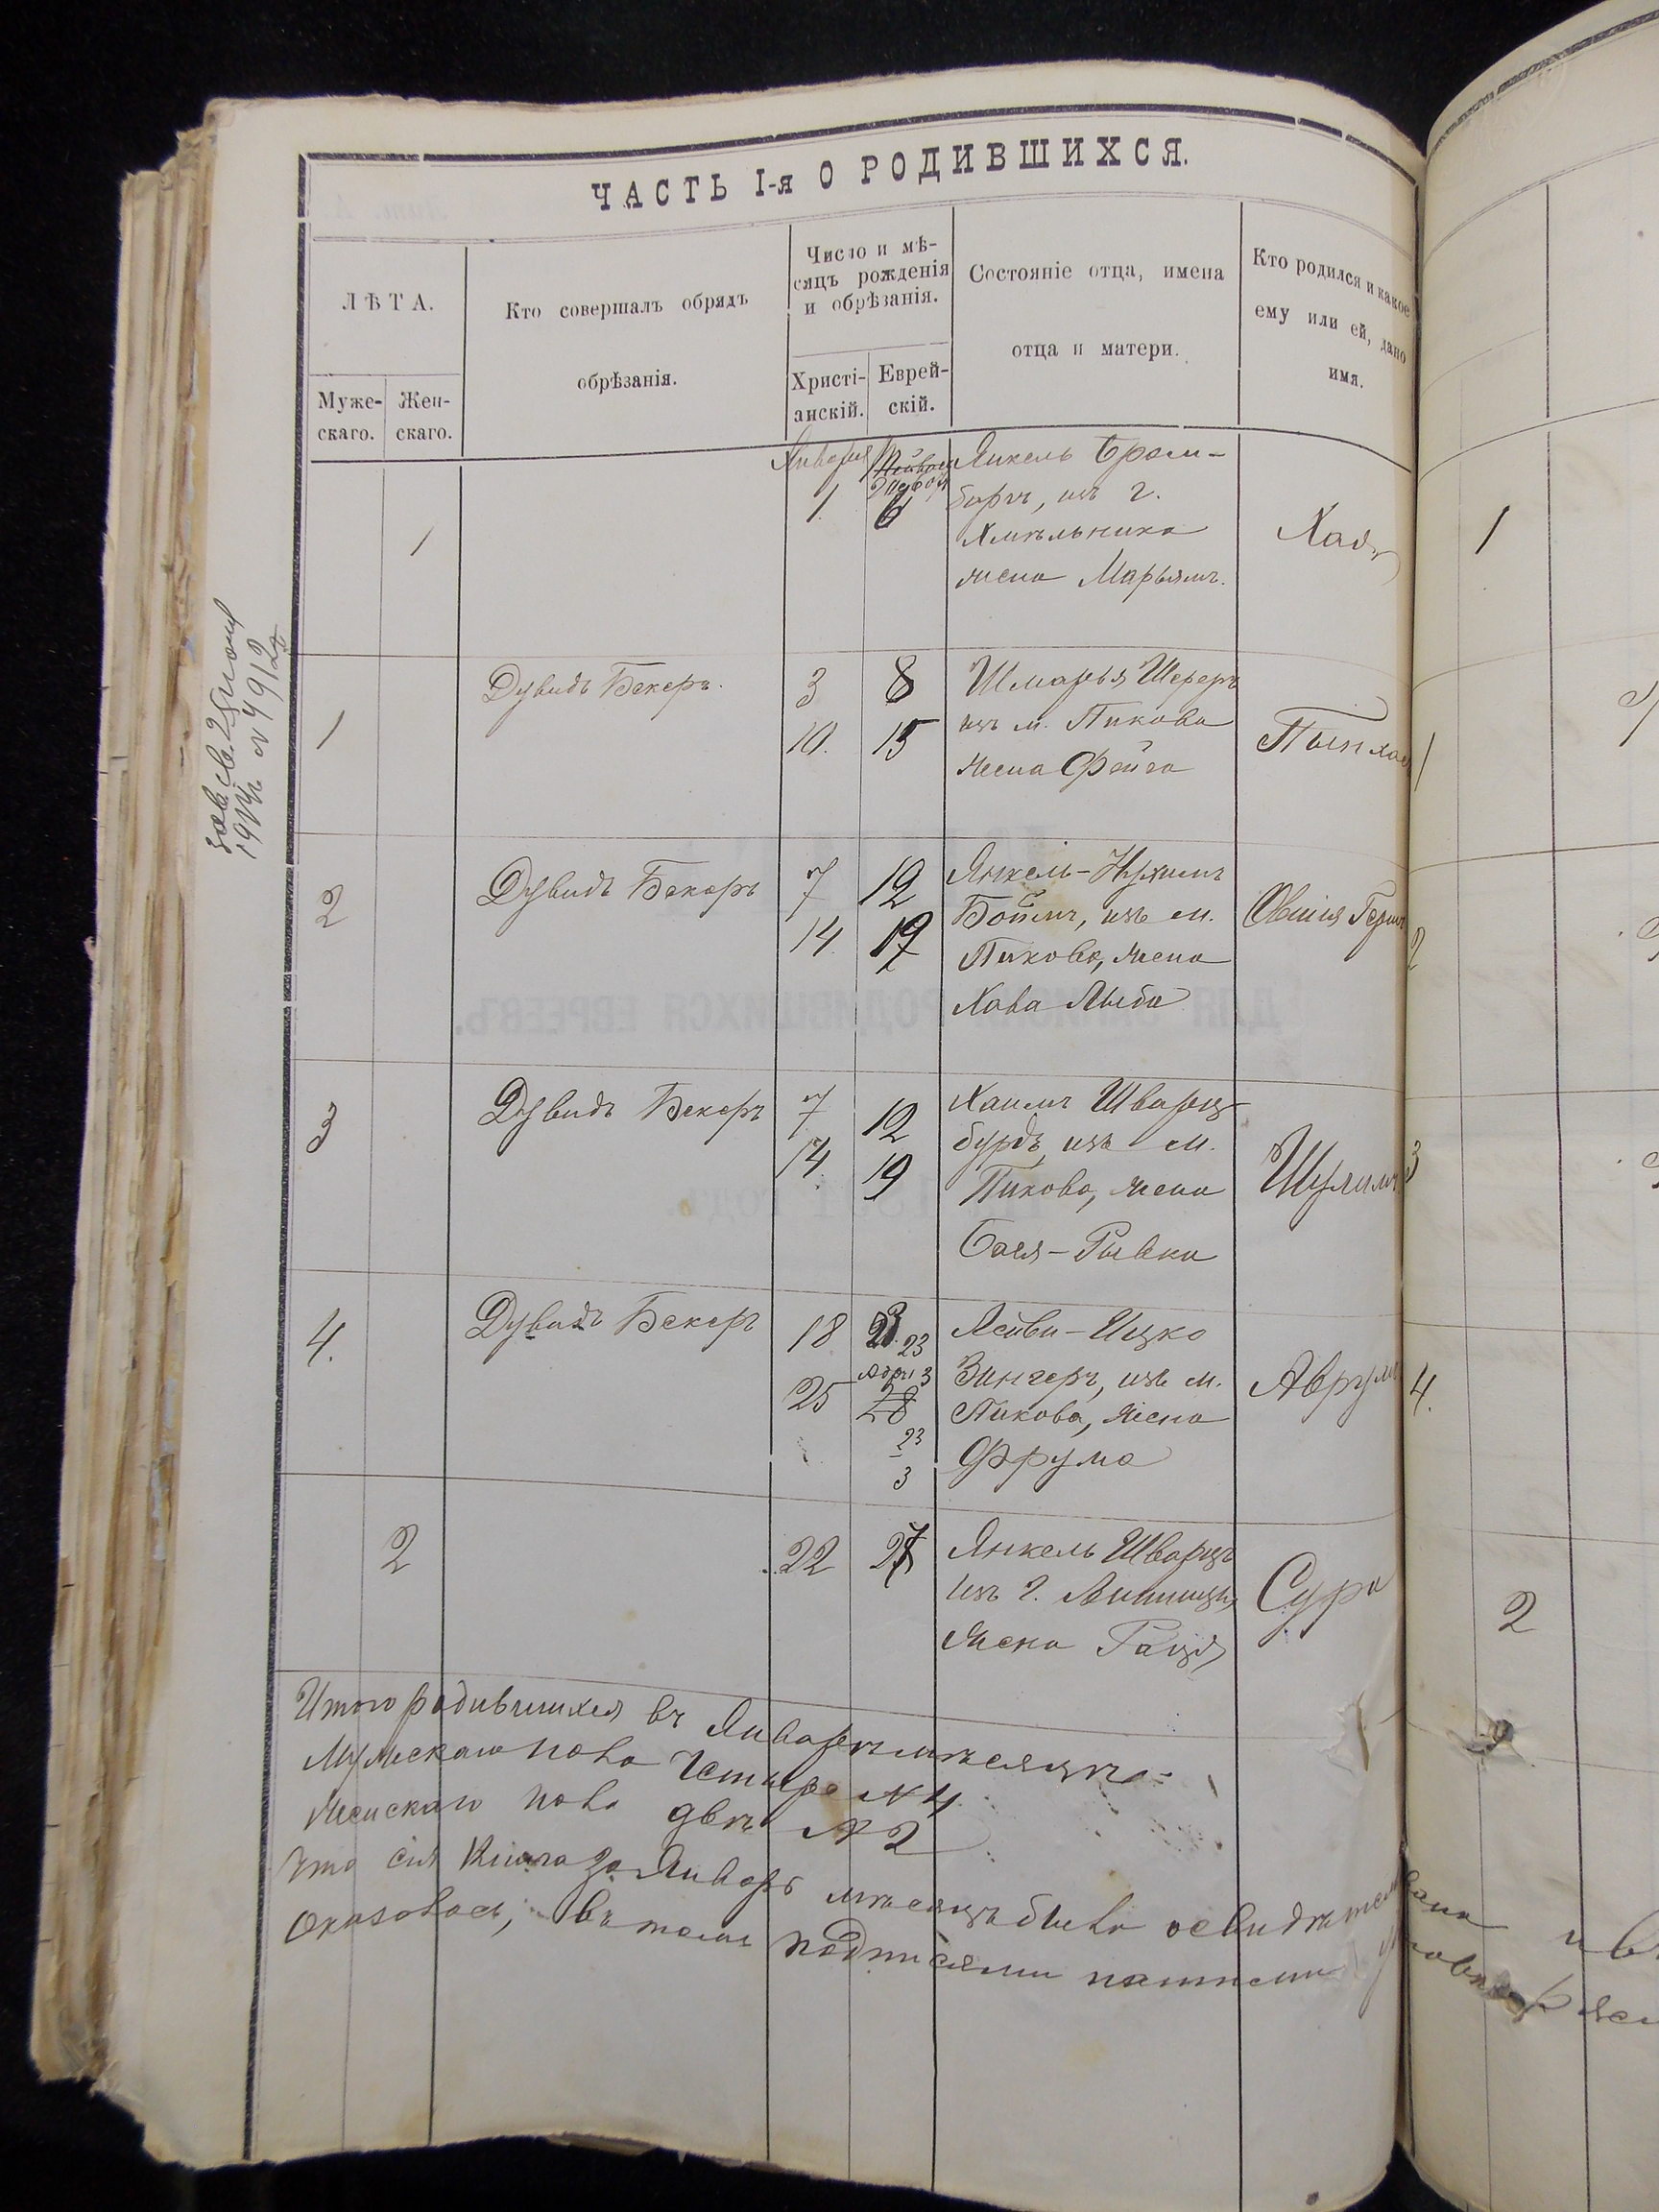 ЧАСТЬ I-я О РОДИВШИХСЯ.
ЛѢТА.
Муже-
скаго.
Жен-
скаго.
Кто совершалъ обрядъ
обрѣзанія.
Число и мѣ-
сяцъ рожденія
и обрѣзанія.
Христі-
анскій.
Еврей-
скій.
Состояніе отца, имена
отца и матери.
Кто родился и какое
ему или ей, дано
имя.
1
Января
1.
6
Янкель Брам-
боргъ, изъ г.
Хмѣльника
жена Марьямъ.
Хая
1
1
Дувидъ Бекеръ.
3
8
10.
15
Шмарья Шереръ
изъ м. Пикова
жена Фейга
Пинхас
1
2
Дувидъ Бекеръ
7
12
14.
19
Янкель-Нухимъ
Бойм, изъ м.
Пикова, жена
Хава Либа
Овшія Герш
2
3
Дувидъ Бекеръ
7
12
14.
19
Хаимъ Шварц-
бурдъ, изъ м.
Пикова, жена
Бася-Рывка
Шулимъ
3
4.
Дувидъ Бекеръ
18
23
25
28
23
3
Лейви-Ицко
Зингеръ, изъ м.
Пикова, жена
Фрума
Аврум
4.
2
22
27
Янкель Шварцъ
изъ г. Винницы,
жена Раця
Сура
2
Итого родившихся въ Январѣ мѣсяцѣ
Мужескаго пола четыре № 4.
Женскаго пола двѣ № 2
Что сія Книга за Январь мѣсяцъ была освидѣтель
оказалась, въ томъ подписями нашими